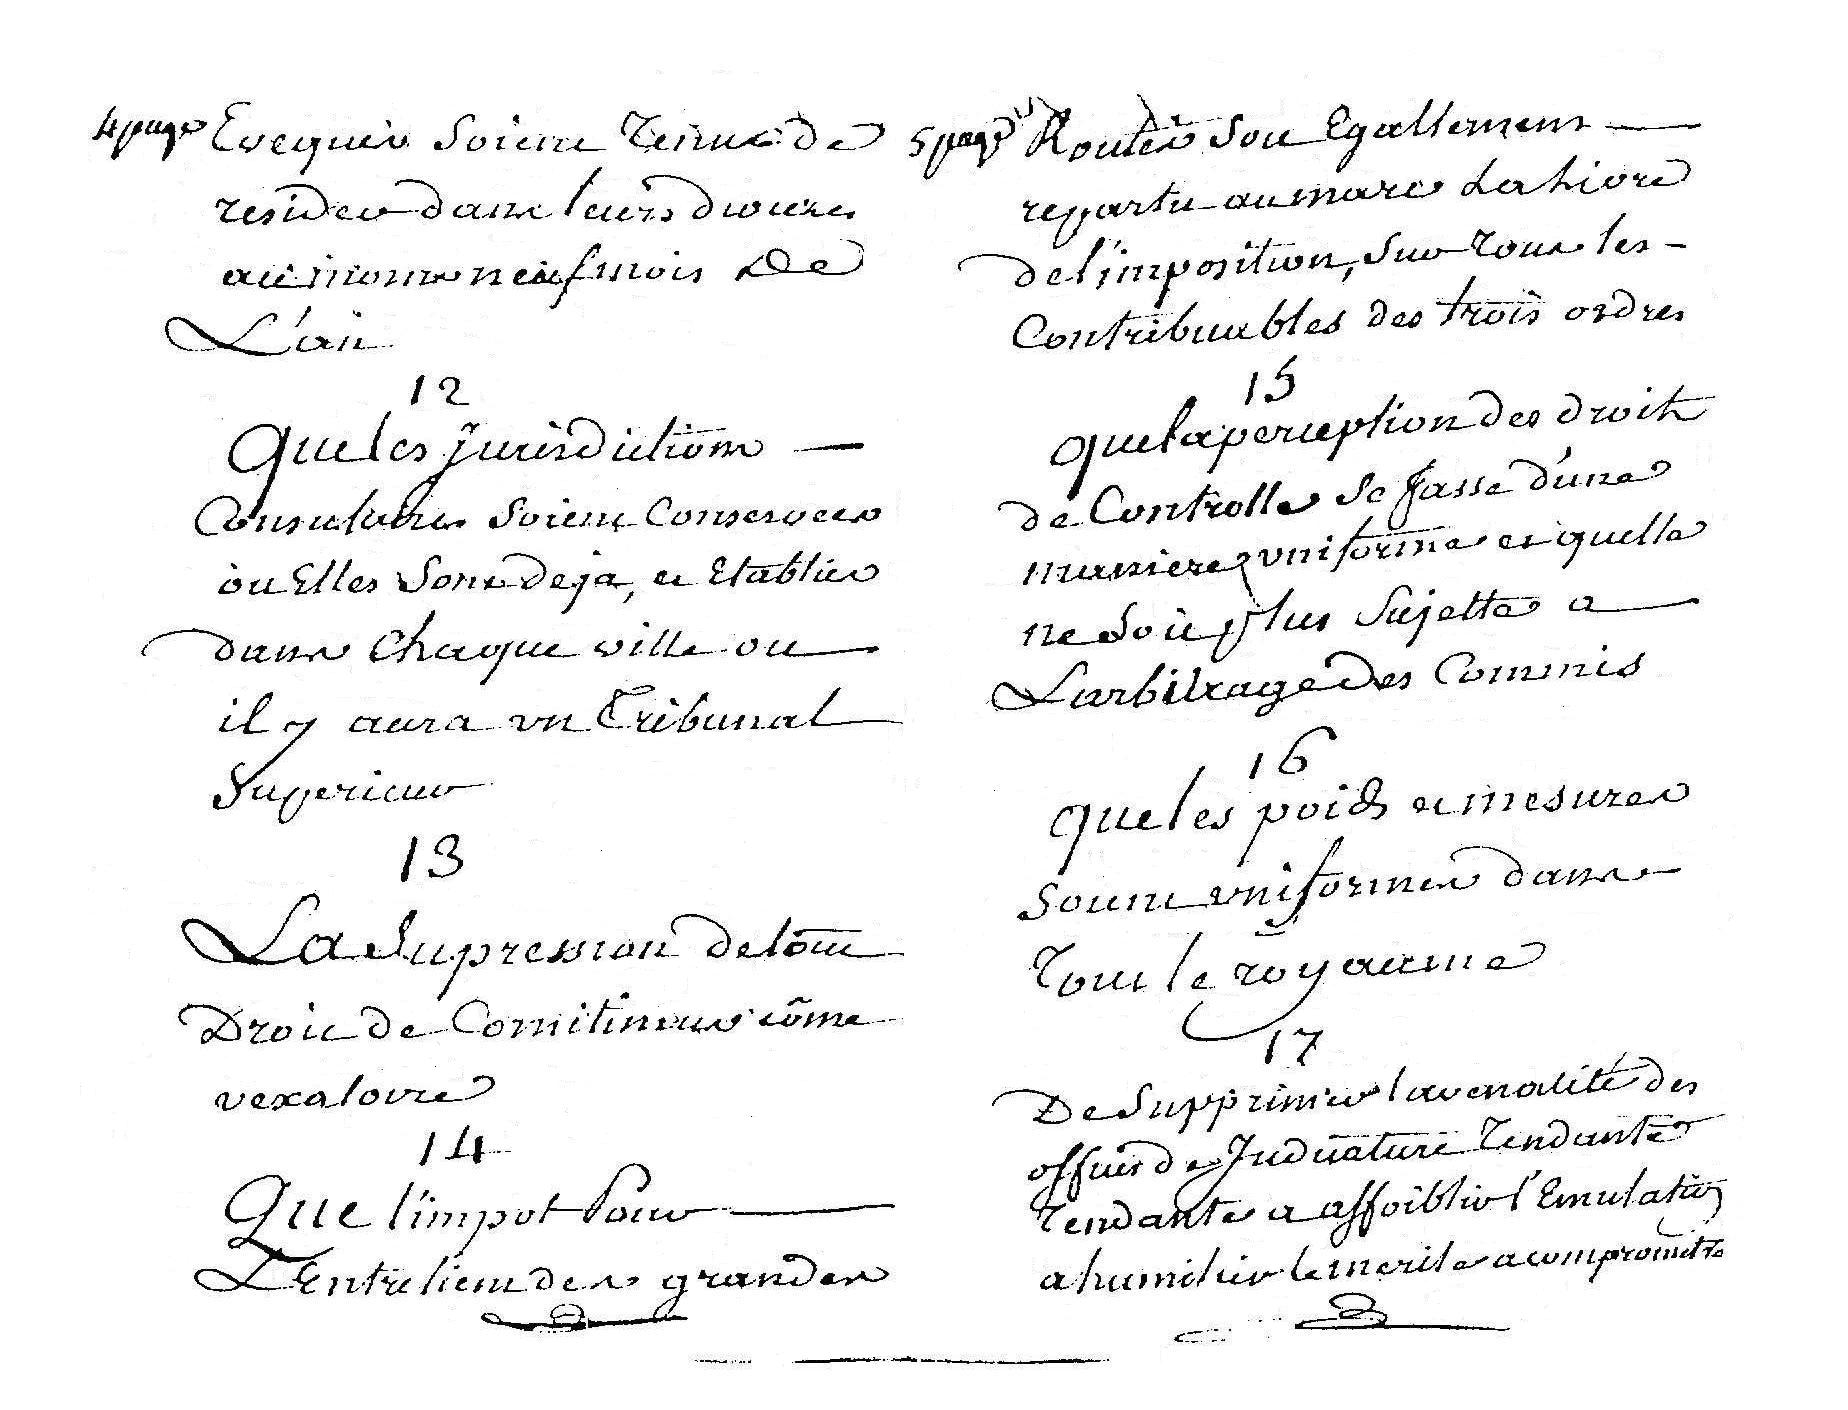 4 page Eveques Soient Tenus de
resider dans leurs dioceses
au moins neuf mois De
L'an
12
Que les Jurisdictions
Consulaires Soient Conservees
ou Elles Sont Deja, et Etablies
dans Chaque ville ou
il y aura un Tribunal
Superieur
13
La Supression de tout
Droit de Comitimus cõme
vexatoire
14
Que l'impot Pour
L'Entretient des grandes
5 page Routes Soit Egallement
repartie au marc La Livre
de l'imposition, Sur Tous les
Contribuables des trois ordres
15
que la perception des droits
de Controlle Se fasse d'une
maniere uniforme et quelle
ne Soit plus Sujette a
Larbitrage Des Commis
16
que les poids et mesures
Soient uniformes dans
Tout le royaume
17
De Supprimer la venalité des
offices de Judicature Tendante
Tendante a affoiblir l'Emulation
a humilier le merite a compromettre